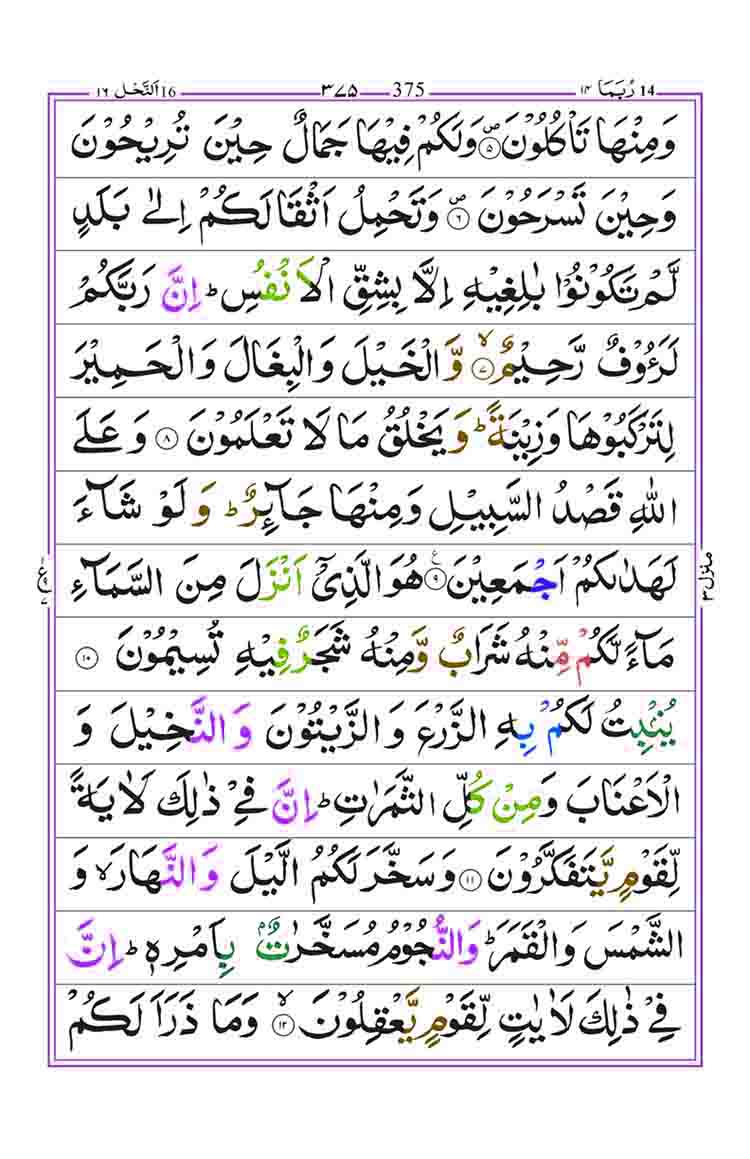 16 اَلنَّحۡل ١٦ — ٣٧٥ — 375 — 14 رُبَمَا ١٤
وَمِنۡهَا تَاۡكُلُوۡنَ ۪‏﴿۵﴾ وَلَكُمۡ فِيۡهَا جَمَالٌ حِيۡنَ تُرِيۡحُوۡنَ
وَحِيۡنَ تَسۡرَحُوۡنَ ۪‏﴿۶﴾ وَتَحۡمِلُ اَثۡقَالَـكُمۡ اِلٰى بَلَدٍ
لَّمۡ تَكُوۡنُوۡا بٰلِغِيۡهِ اِلَّا بِشِقِّ الۡاَنۡفُسِ‌ؕ اِنَّ رَبَّكُمۡ
لَرَءُوۡفٌ رَّحِيۡمٌۙ ‏﴿۷﴾ وَّالۡخَيۡلَ وَالۡبِغَالَ وَالۡحَمِيۡرَ
لِتَرۡكَبُوۡهَا وَزِيۡنَةً‌ ؕ وَيَخۡلُقُ مَا لَا تَعۡلَمُوۡنَ ‏﴿۸﴾ وَعَلَى
اللّٰهِ قَصۡدُ السَّبِيۡلِ وَمِنۡهَا جَآٮِٕرٌ‌ؕ وَلَوۡ شَآءَ
لَهَدٰٮكُمۡ اَجۡمَعِيۡنَ ‏﴿۹﴾ هُوَ الَّذِىۡۤ اَنۡزَلَ مِنَ السَّمَآءِ
مَآءً‌ لَّـكُمۡ مِّنۡهُ شَرَابٌ وَّمِنۡهُ شَجَرٌ فِيۡهِ تُسِيۡمُوۡنَ ‏﴿۱۰﴾
يُنۡۢبِتُ لَـكُمۡ بِهِ الزَّرۡعَ وَالزَّيۡتُوۡنَ وَالنَّخِيۡلَ وَ
الۡاَعۡنَابَ وَمِنۡ كُلِّ الثَّمَرٰتِ‌ؕ اِنَّ فِىۡ ذٰلِكَ لَاٰيَةً
لِّقَوۡمٍ يَّتَفَكَّرُوۡنَ ‏﴿۱۱﴾ وَسَخَّرَ لَـكُمُ الَّيۡلَ وَالنَّهَارَۙ وَ
الشَّمۡسَ وَالۡقَمَرَ‌ؕ وَالنُّجُوۡمُ مُسَخَّرٰتٌۢ بِاَمۡرِهٖؕ اِنَّ
فِىۡ ذٰلِكَ لَاٰيٰتٍ لِّقَوۡمٍ يَّعۡقِلُوۡنَۙ ‏﴿۱۲﴾ وَمَا ذَرَاَ لَكُمۡ
منزل ۳